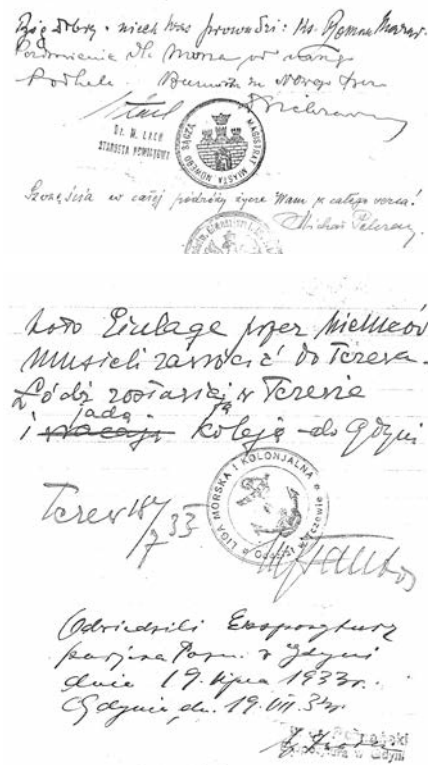 Bóg dobry niech Was prowadzi: Ks. Roman
Pozdrowienia dla Morza od całego
Podhala. Burmistrz m Nowego Sącza
Dr. M. ŁACH
STAROSTA POWIATOWY
MAGISTRAT MIASTA NOWEGO SĄCZA
Szczęścia w całej podróży życzę Wam z całego serca!
Michał
koło Einlage przez Niemców
musieli zawrócić do Tczewa.
Łódź zostawiają w Tczewie
i jadą koleją do Gdyni
LIGA MORSKA I KOLONJALNA
Oddział w Tczewie
Tczew 18/7 33
Odwiedzili Ekspozyturę
Kurjera Pozn. w Gdyni
dnia 19. lipca 1933r.
Gdynia, dn. 19.VII.33r.
Kurjer Poznański
Ekspozytura w Gdyni